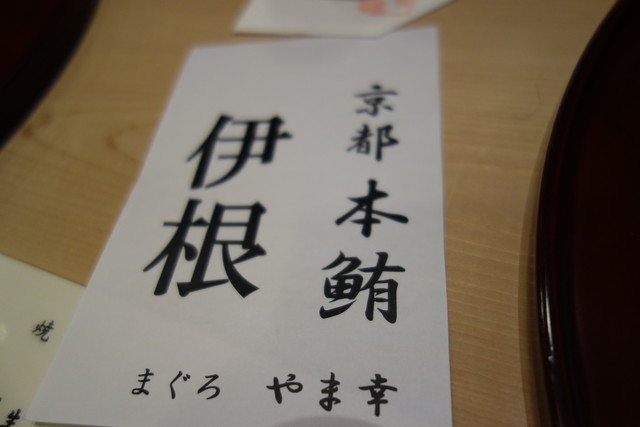 京都本鮪
伊根
まぐろ やま幸
焼